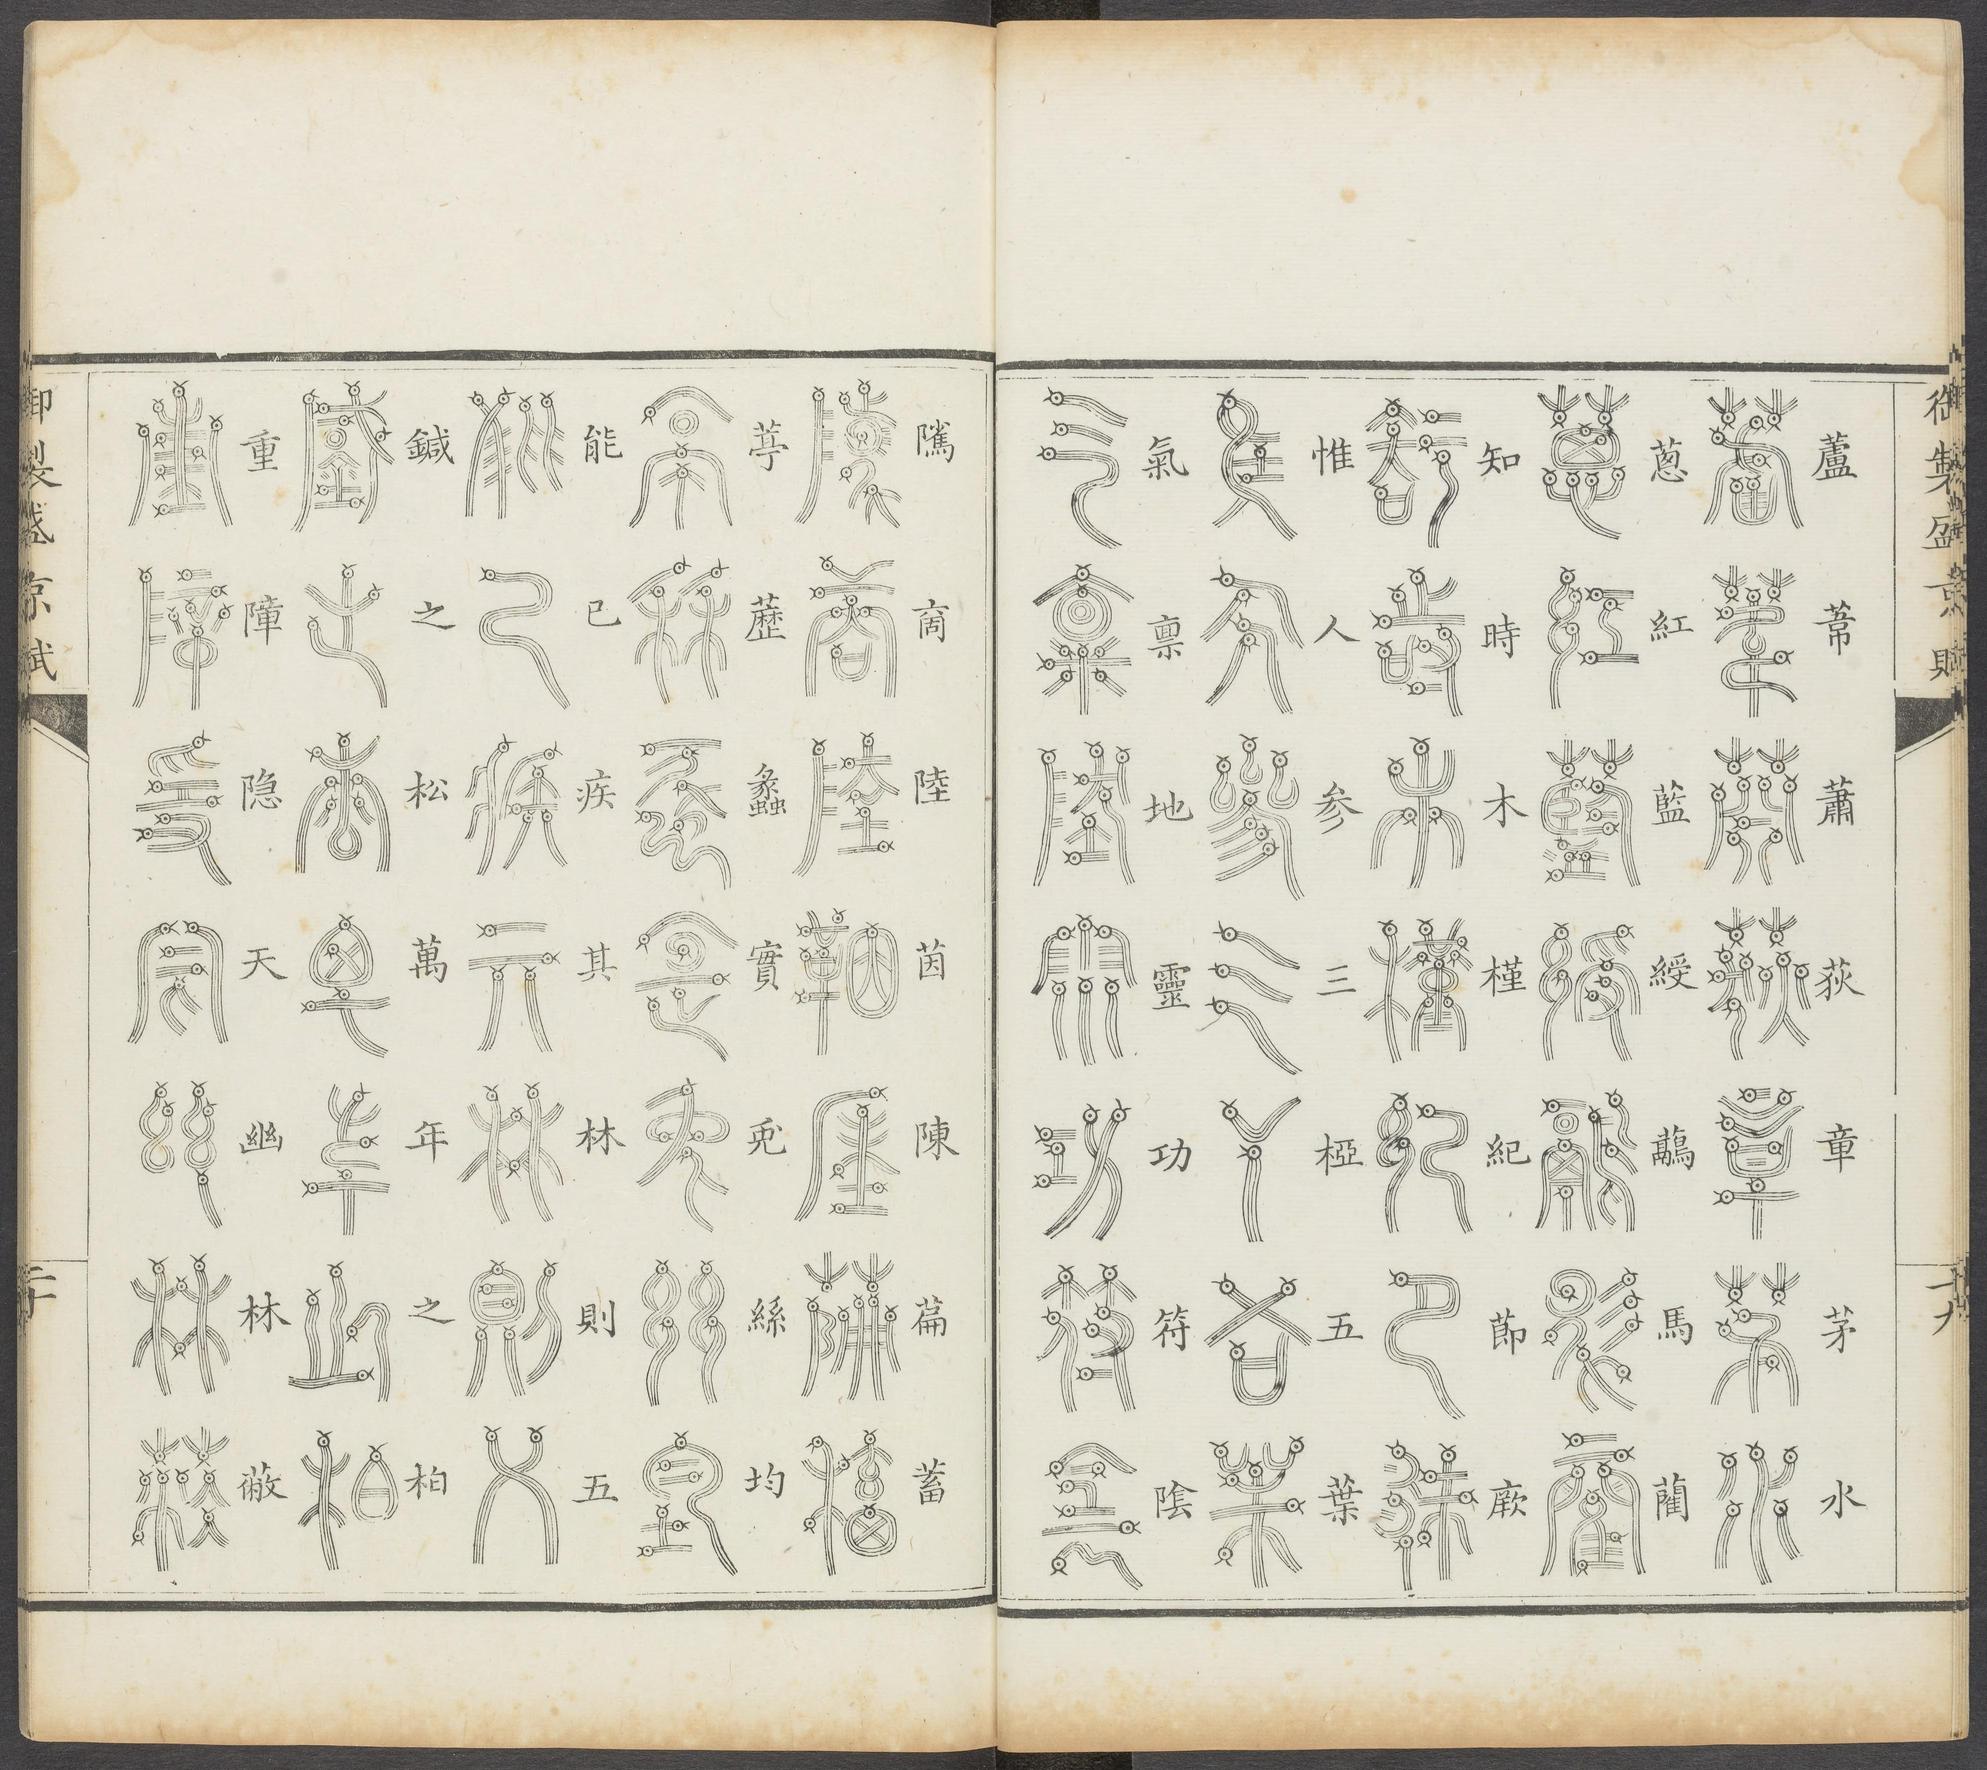 御製盛京賦
十九
蘆葦蕭荻章茅水
蔥紅藍綬鷊馬藺
知時木槿紀節厥
惟人参三椏五葉
氣禀地靈功符陰
隲啇陸茵陳萹蓄
葶藶蠡實兎絲均
能已疾其林則五
鍼之松萬年之柏
重障隐天幽林蔽
御製盛京賦
二十